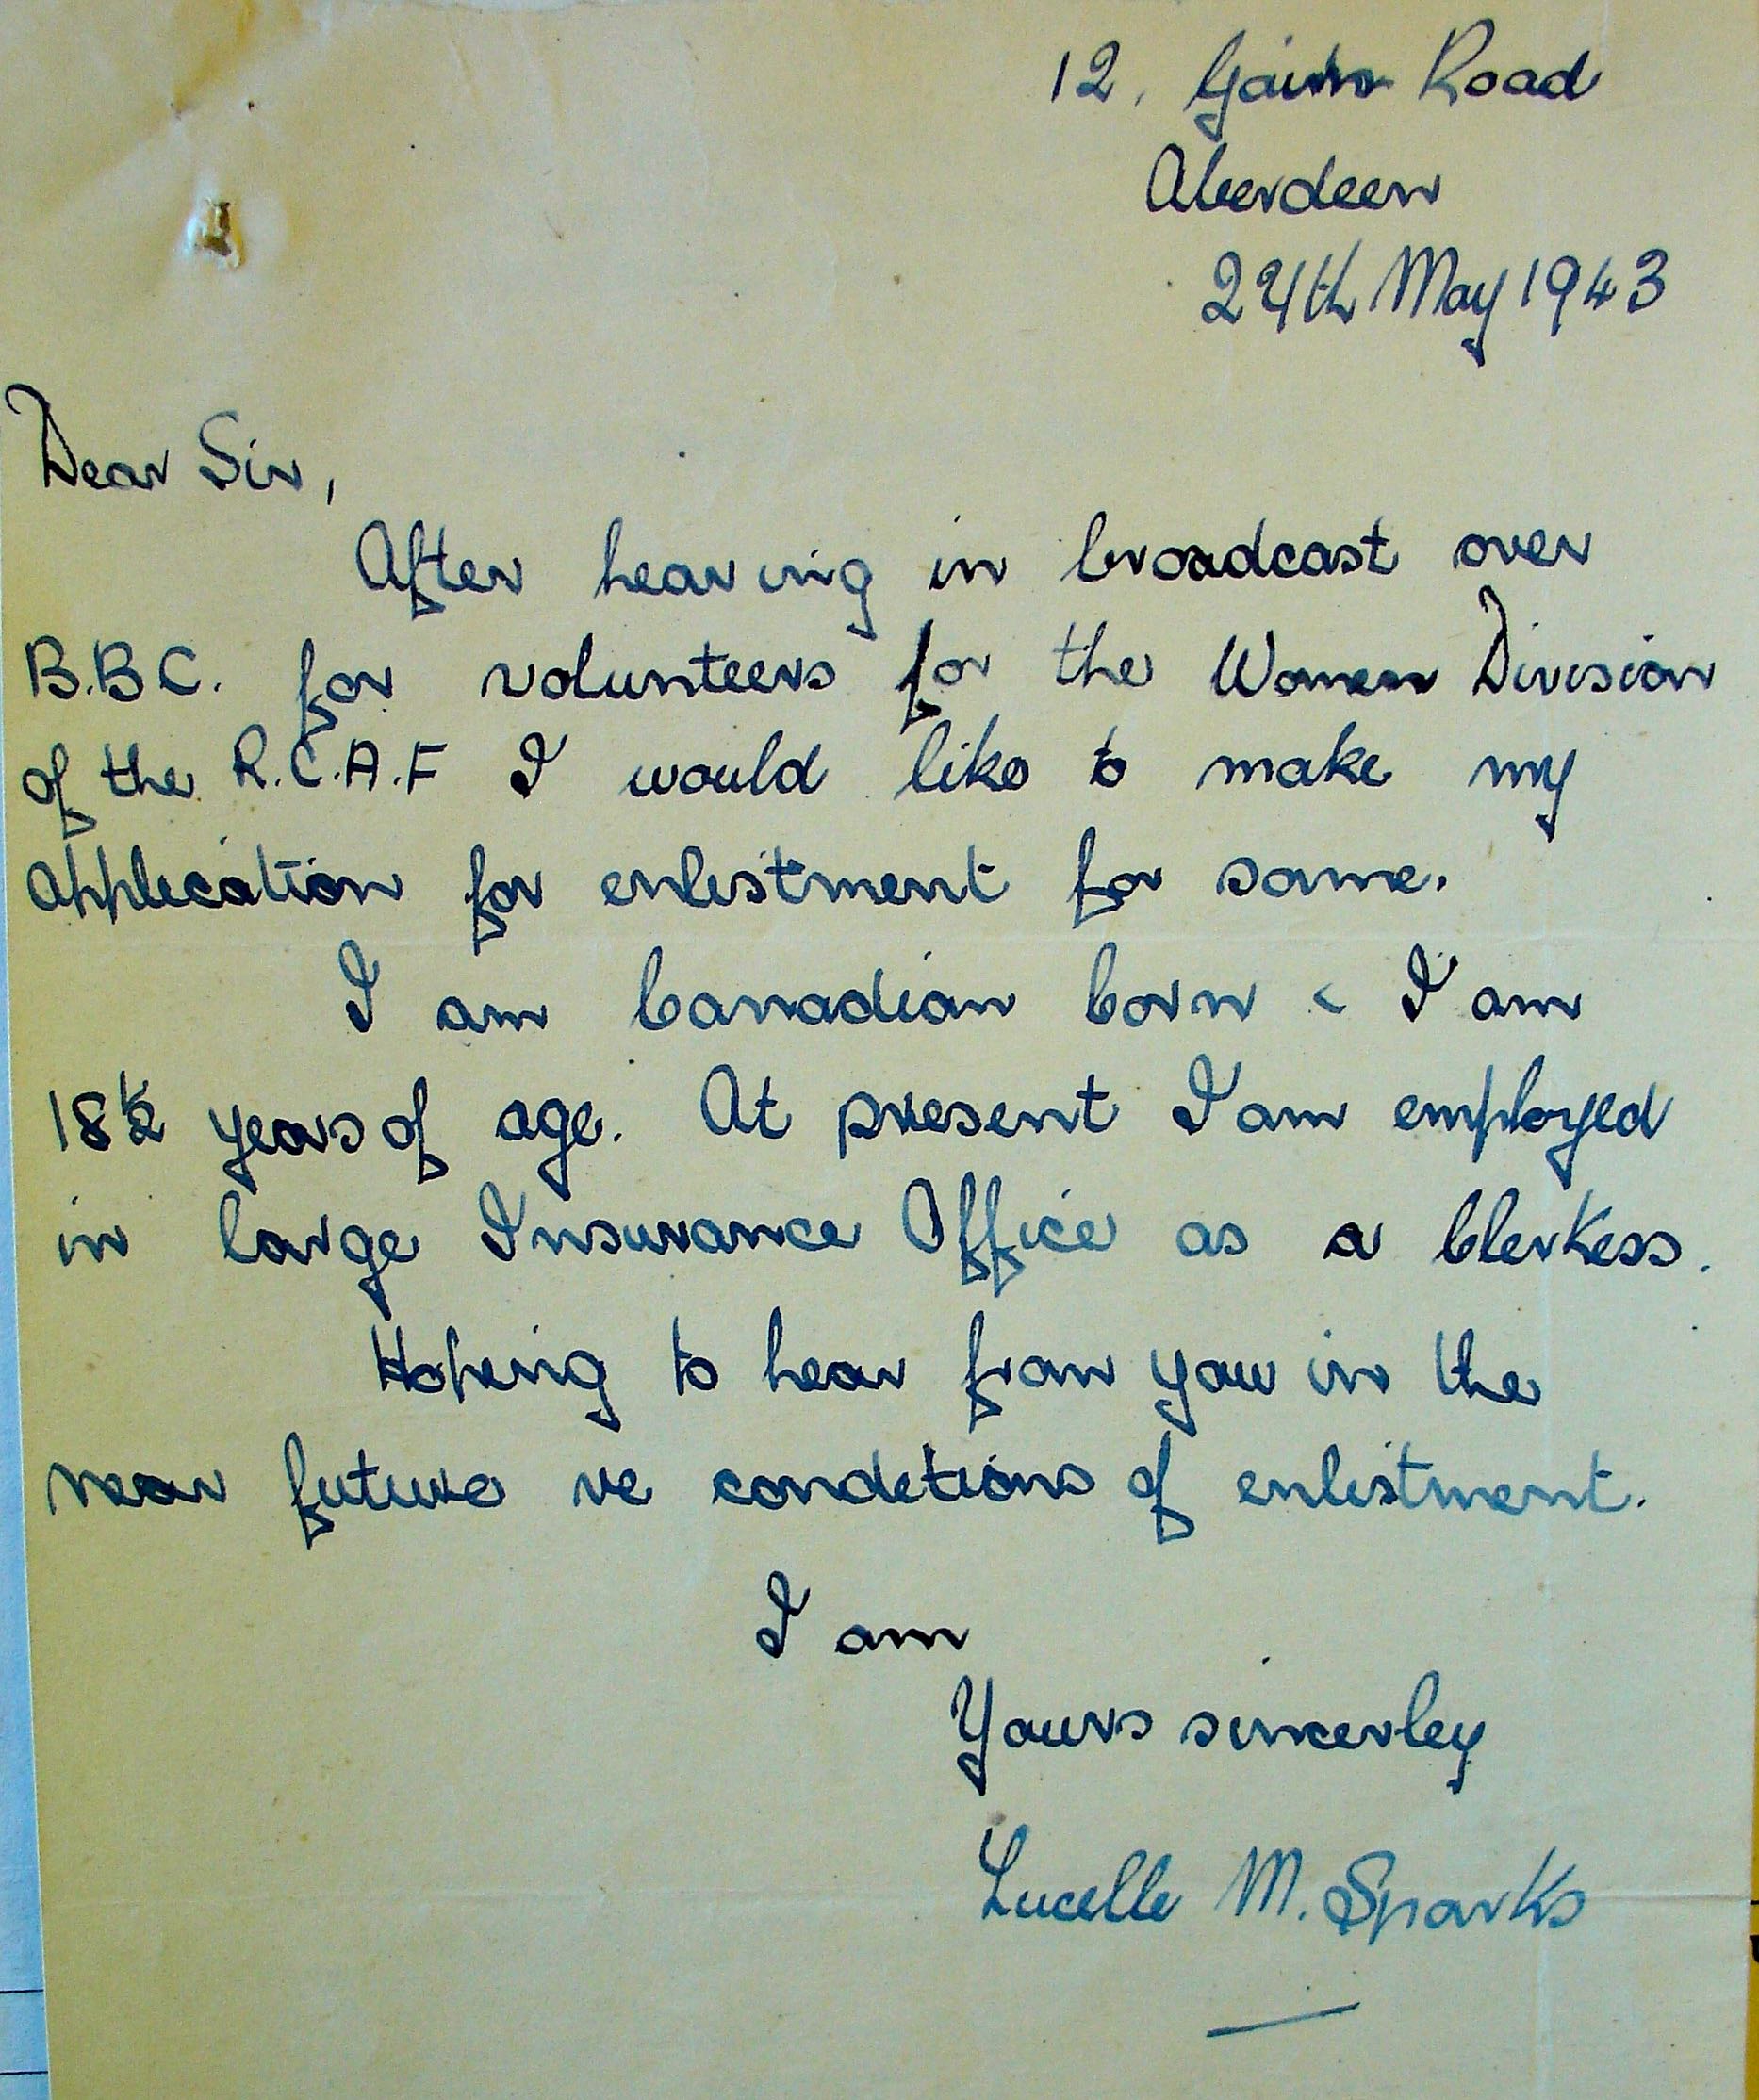 12, Gairn Road
Aberdeen
24th May 1943
Dear Sir,
After hearing in broadcast over
B.B.C. for volunteers for the Women Division
of the R.C.A.F I would like to make my
application for enlistment for same.
I am Canadian born & I am
18½ years of age. At present I am employed
in large Insurance Office as a Clerkess.
Hoping to hear from you in the
near future re conditions of enlistment.
I am
Yours sincerley
Lucelle M. Sparks